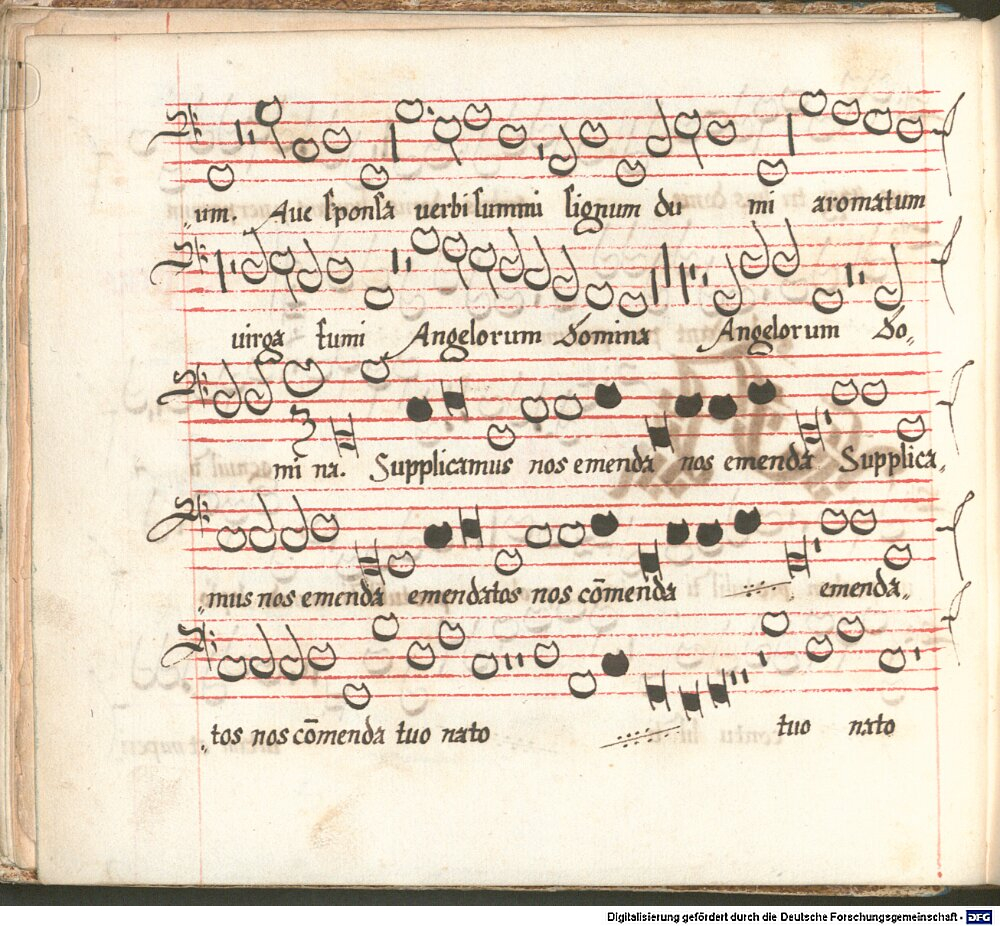 um. Aue sponsa uerbi summi lignum du mi aromatum
uirga fumi Angelorum Domina Angelorum Do„
mi na. Supplicamus nos emenda nos emenda Supplica„
„mus nos emenda emendatos nos cōmenda emenda„
„tos nos cōmenda tuo nato tuo nato
Digitalisierung gefördert durch die Deutsche Forschungsgemeinschaft - DFG